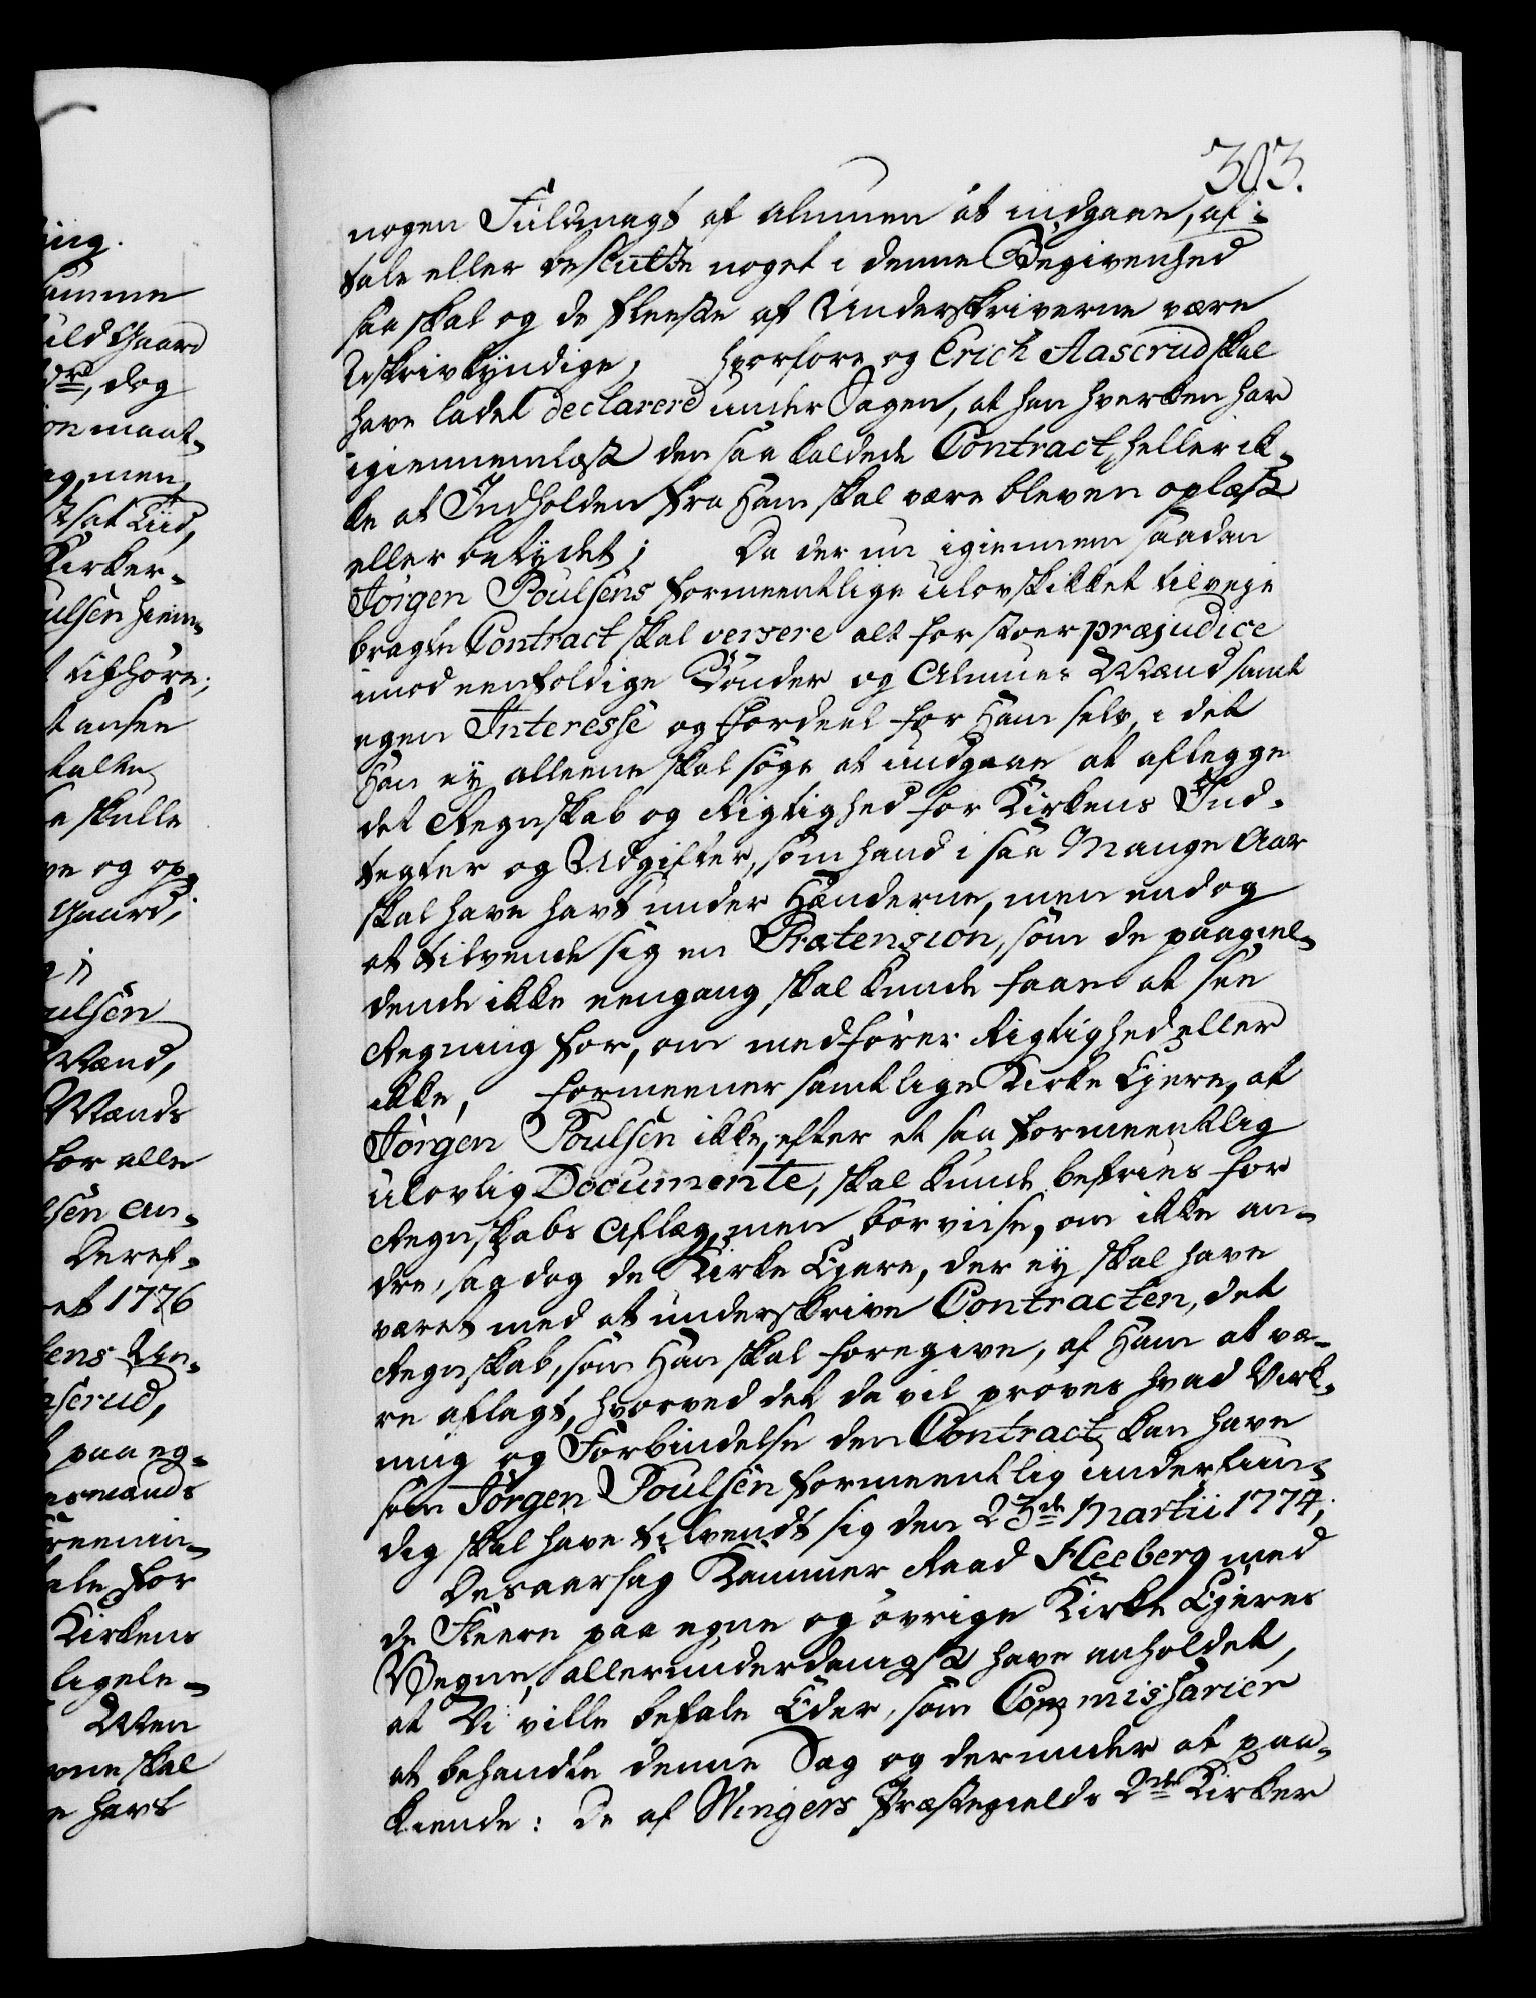 303.
nogen Fuldmagt af almuen at indgaae, af-
tale eller beslutte noget i denne Begivenhed
saa skal og de fleeste af Underskriverne være
Uskrivkyndige, hvorfore og Erich Aaserud skal
have ladet declarere under Sagen, at han hverken har
igiennemlæst den saa kaldede Contract, heller ik-
ke at Indholden fra Ham skal være bleven oplæst
eller betydet; Da der nu igiennem saadan
Jörgen Poulsens formeentlige ulovskikket tilveje
bragte Contract skal versere alt for stoer præjudice
imod eenfoldige Bönder og Almues Mænd samt
egen Interesse og Fordeel for Ham selv, i det
Han ey alleene skal söge at undgaae at aflegge
det Regnskab og Rigtighed for Kirkens Ind-
tegter og Udgifter, som hand i saa Mange Aar
skal have havt under Hænderne, men endog
at tilvende sig en Prætension, som de paagiel-
dende ikke eengang skal kunde faae at see
Regning for, om medförer Rigtighed eller
ikke, formeener samtlige Kirke Ejere, at
Jörgen Poulsen ikke, efter et saa formeentlig
ulovlig Documente, skal kunde befries for
Regnskabs Aflæg, men bör viise, om ikke an-
dre, saa dog de Kirke Ejere, der ey skal have
været med at underskrive Contracten, det
Regnskab, som Han skal foregive, af Ham at væ-
re aflagt, hvorved det da vil pröves hvad Virk-
ning og Forbindelse den Contract kan have
som Jörgen Poulsen formeentlig underfun-
dig skal have tilvendt sig den 23de Martii 1774;
Desaarsag Kammer Raad Heeberg med
de Fleere paa egne og övrige Kirke Ejeres
Vegne, allerunderdanigst have anholdet,
at Vi ville befale Eder, som Commissarier
at behandle denne Sag og derunder at paa-
kiende: De af Wingers Præstegields 2de Kirker